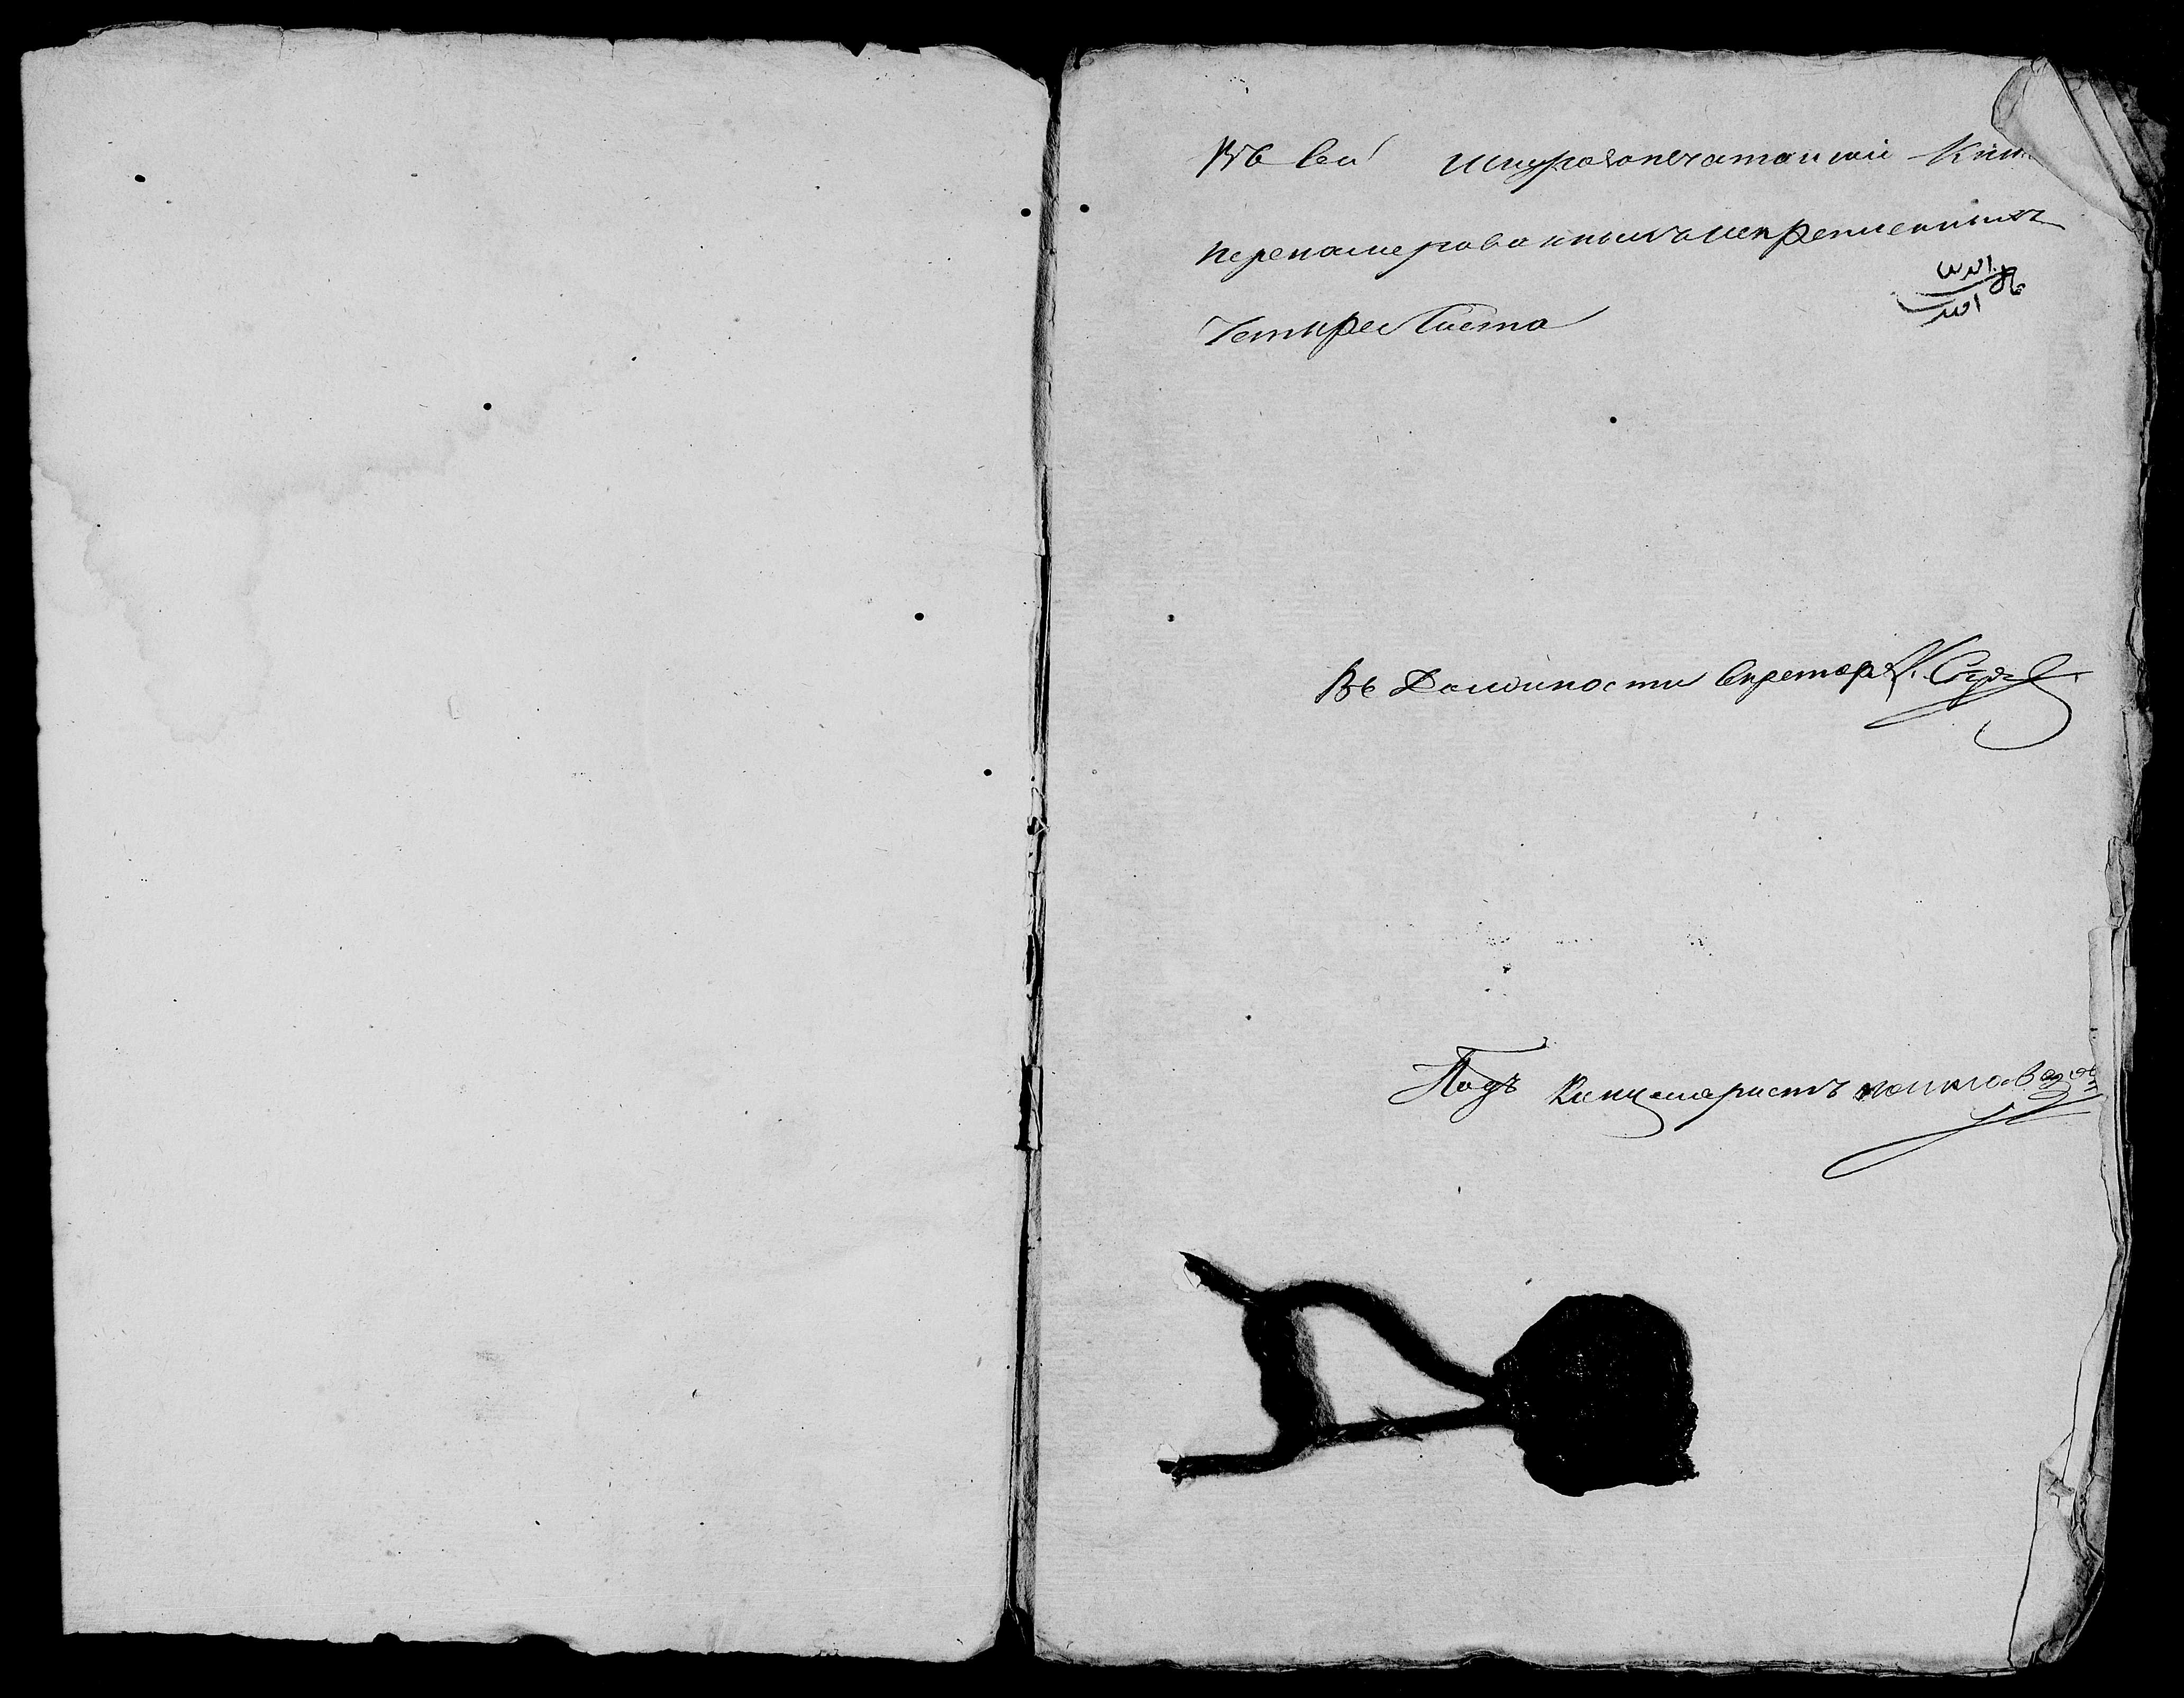 Въ сей шнурозапечатанной Кни
перенумерованныхъ искрепленныхъ
Четыре Листа
Въ Должности Секретаря
Подъ Канцеляристъ